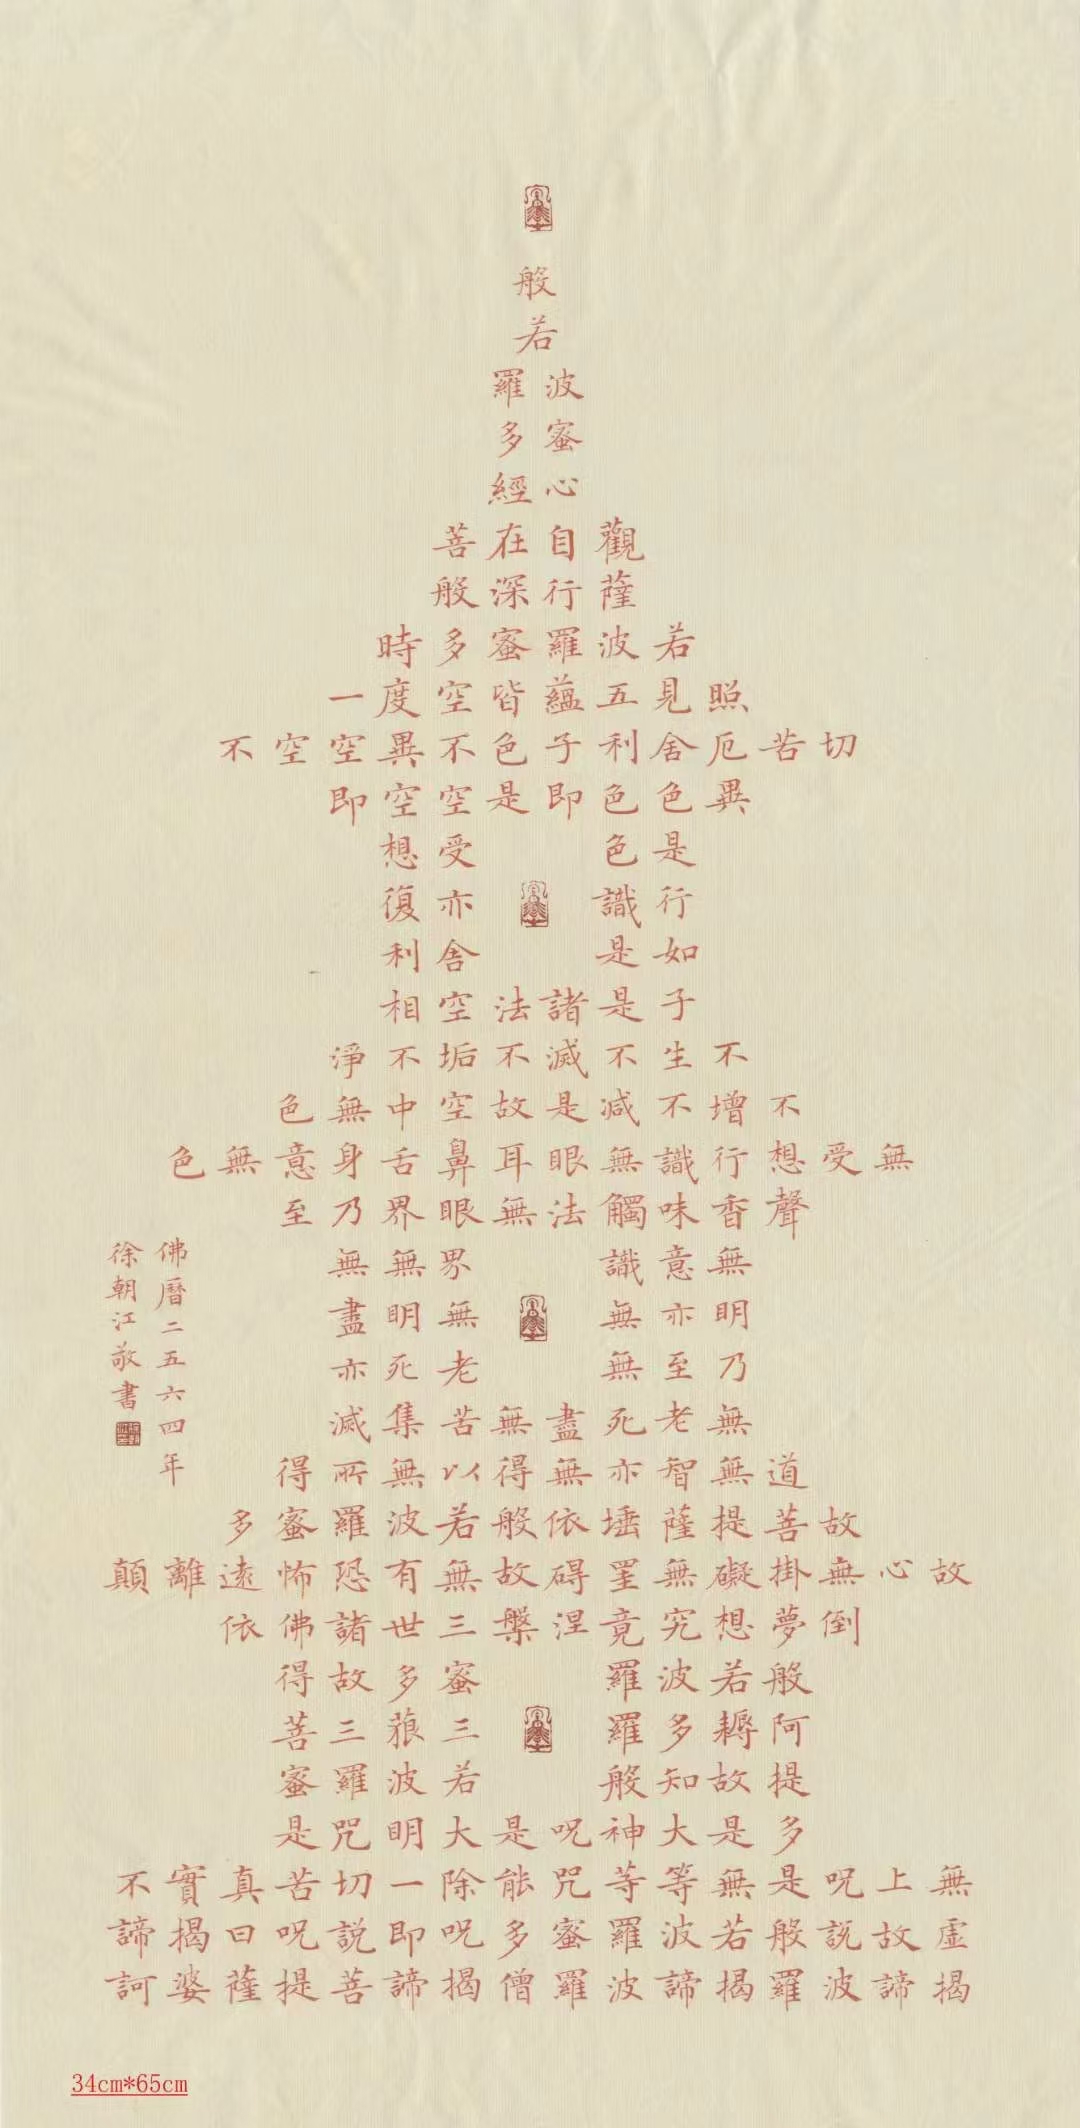 般
若
波羅
蜜多
心經
觀自在菩
薩行深般
若波羅蜜多時
照見五蘊皆空度一
切苦厄舍利子色不異空空不
異色色即是空空即
是色受想
行識亦復
如是舍利
子是諸法空相
不生不滅不垢不淨
不增不減是故空中無色
無受想行識無眼耳鼻舌身意無色
聲香味觸法無眼界乃至
無意識界無無
明亦無無明盡
乃至無老死亦
無老死盡無苦集滅
道無智亦無得以無所得
故菩提薩埵依般若波羅蜜多
故心無掛礙無罣碍故無有恐怖遠離顛
倒夢想究竟涅槃三世諸佛依
般若波羅蜜多故得
阿耨多羅三藐三菩
提故知般若波羅蜜
多是大神呪是大明咒是
無上呪是無等等咒能除一切苦真實不
虛故說般若波羅蜜多呪即說呪曰揭諦
揭諦波羅揭諦波羅僧揭諦菩提薩婆訶
佛曆二五六四年
徐朝江敬書
34cm*65cm